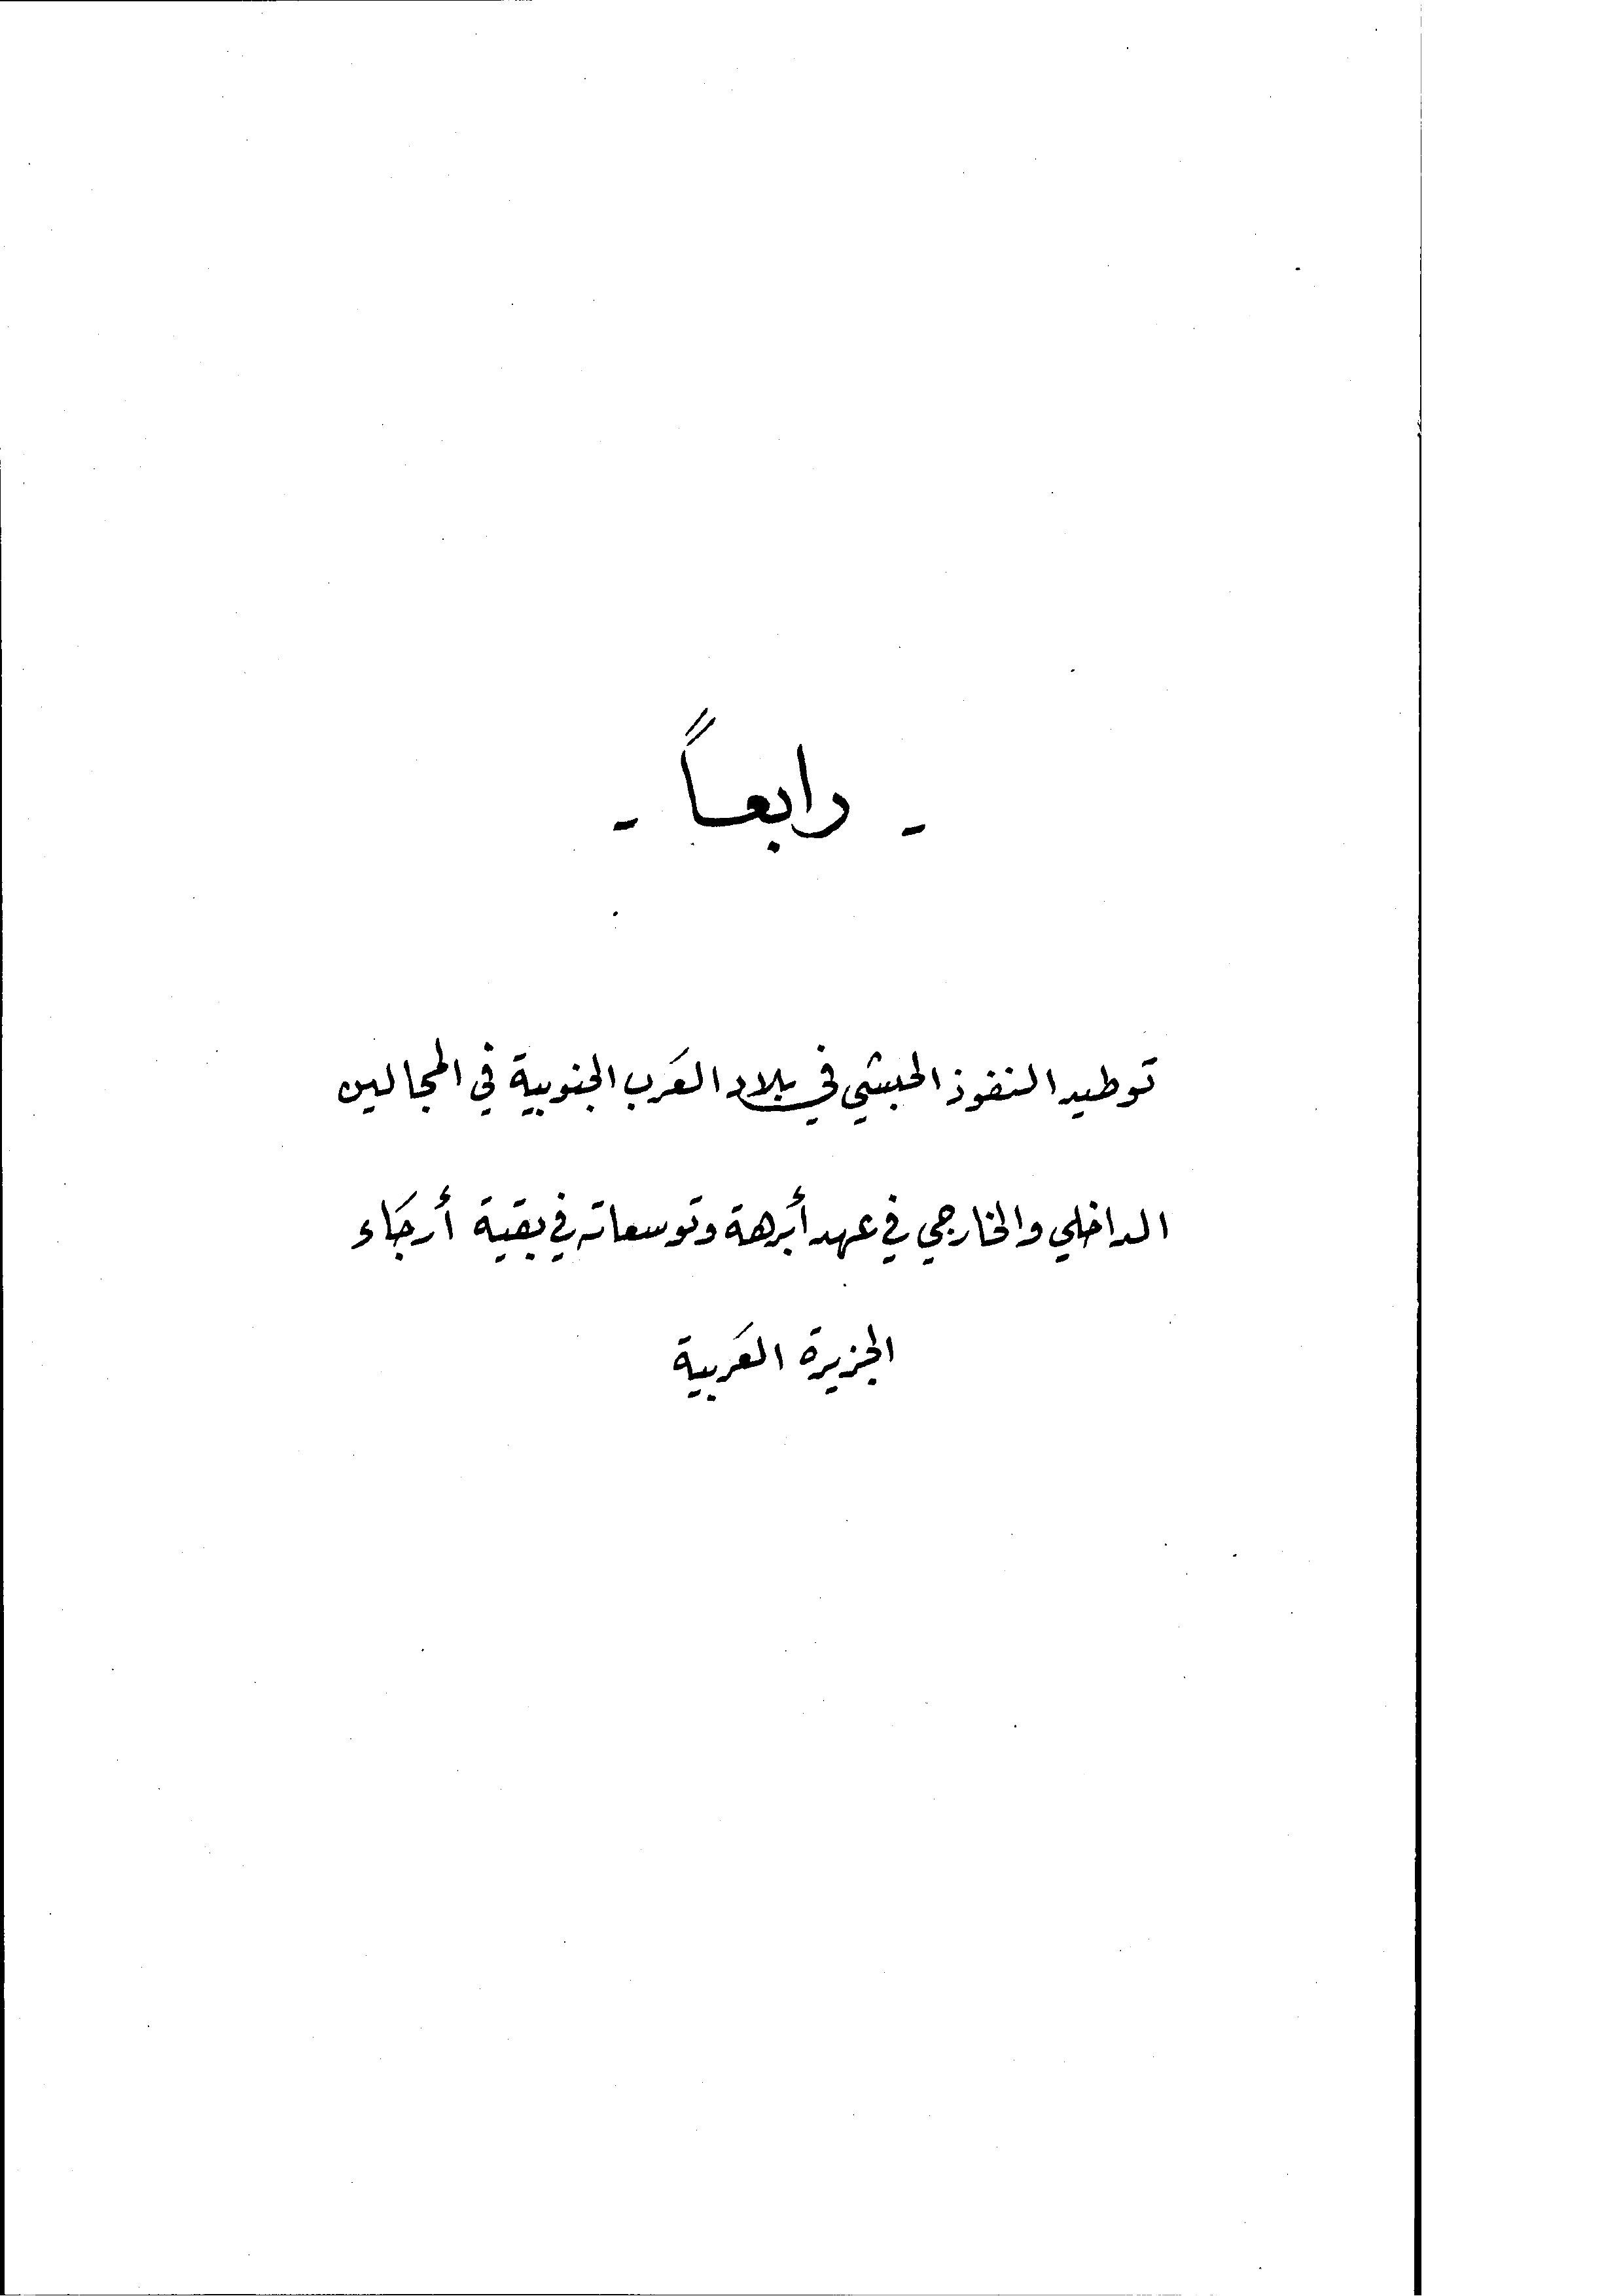 - رابعاً -
توطيد النفوذ الحبشي في بلاد العَرب الجنوبية في المجالين
الداخلي والخارجي في عهد أبَرهة وتوسعاته في بقية أرجَاء
الجزيرة العَربية